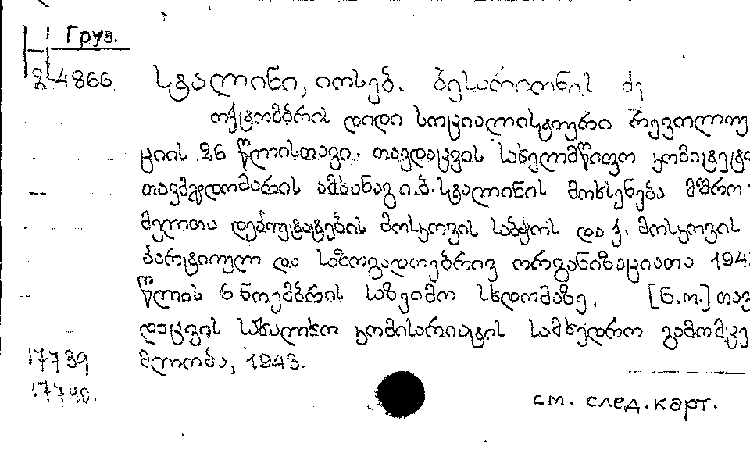 Груз.
2-4866. სტალინი, იოსებ. ბესარიონის ძე
ოქტომბრის დიდი სოციალისტური რევოლუ
ციის 26 წლისთავი. თავდაცვის სახელმწიფო კომიტეტი
თავმჯდომარის ამხანაგ ი.ბ. სტალინის მოხსენება მშრო-
მელთა დეპუტატების მოსკოვის საბჭოს და ქ. მოსკოვის
პარტიულ და საზოგადოებრივ ორგანიზაციათა 194
წლის 6 ნოემბრის საზეიმო სხდომაზე. [Б.м.] თავ
დაცვის სახალხო კომისარიატის სამხედრო გამომცე
17739 მლობა, 1943.
17740.
см. след. карт.